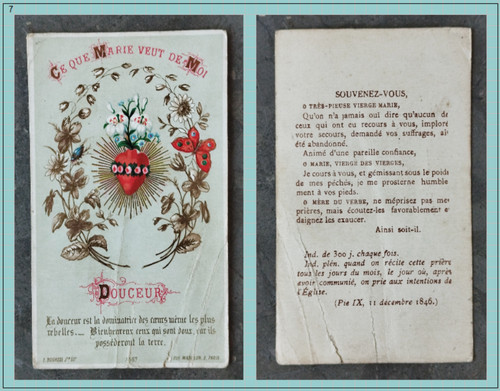 7
CE QUE MARIE VEUT DE MOI
DOUCEUR
La douceur est la dominatrice des cœurs même les plus
rebelles..... Bienheureux ceux qui sont doux, car ils
possèderont la terre.
SOUVENEZ-VOUS,
O TRÈS-PIEUSE VIERGE MARIE,
Qu'on n'a jamais ouï dire qu'aucun de
ceux qui ont eu recours à vous, imploré
votre secours, demandé vos suffrages, ait
été abandonné.
Animé d'une pareille confiance,
O MARIE, VIERGE DES VIERGES,
Je cours à vous, et gémissant sous le poids
de mes péchés, je me prosterne humble
ment à vos pieds.
O MÈRE DU VERBE, ne méprisez pas mes
prières, mais écoutez-les favorablement et
daignez les exaucer.
Ainsi soit-il.
Ind. de 300 j. chaque fois.
Ind. plén. quand on récite cette prière
tous les jours du mois, le jour où, après
avoir communié, on prie aux intentions de
l'Église.
(Pie IX, 11 décembre 1846.)